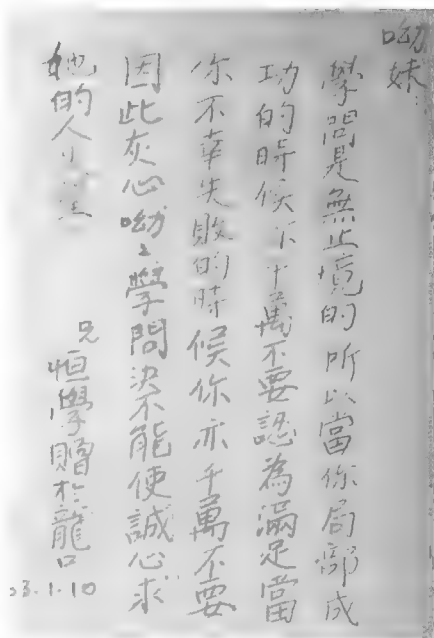 呦妹:
學問是無止境的所以當你局部成
功的時候下千萬不要認為滿足當
你不幸失敗的時候你亦千萬不要
因此灰心呦呦學問決不能使誠心求
她的人
兄
恒學贈於龍口
53.1.10